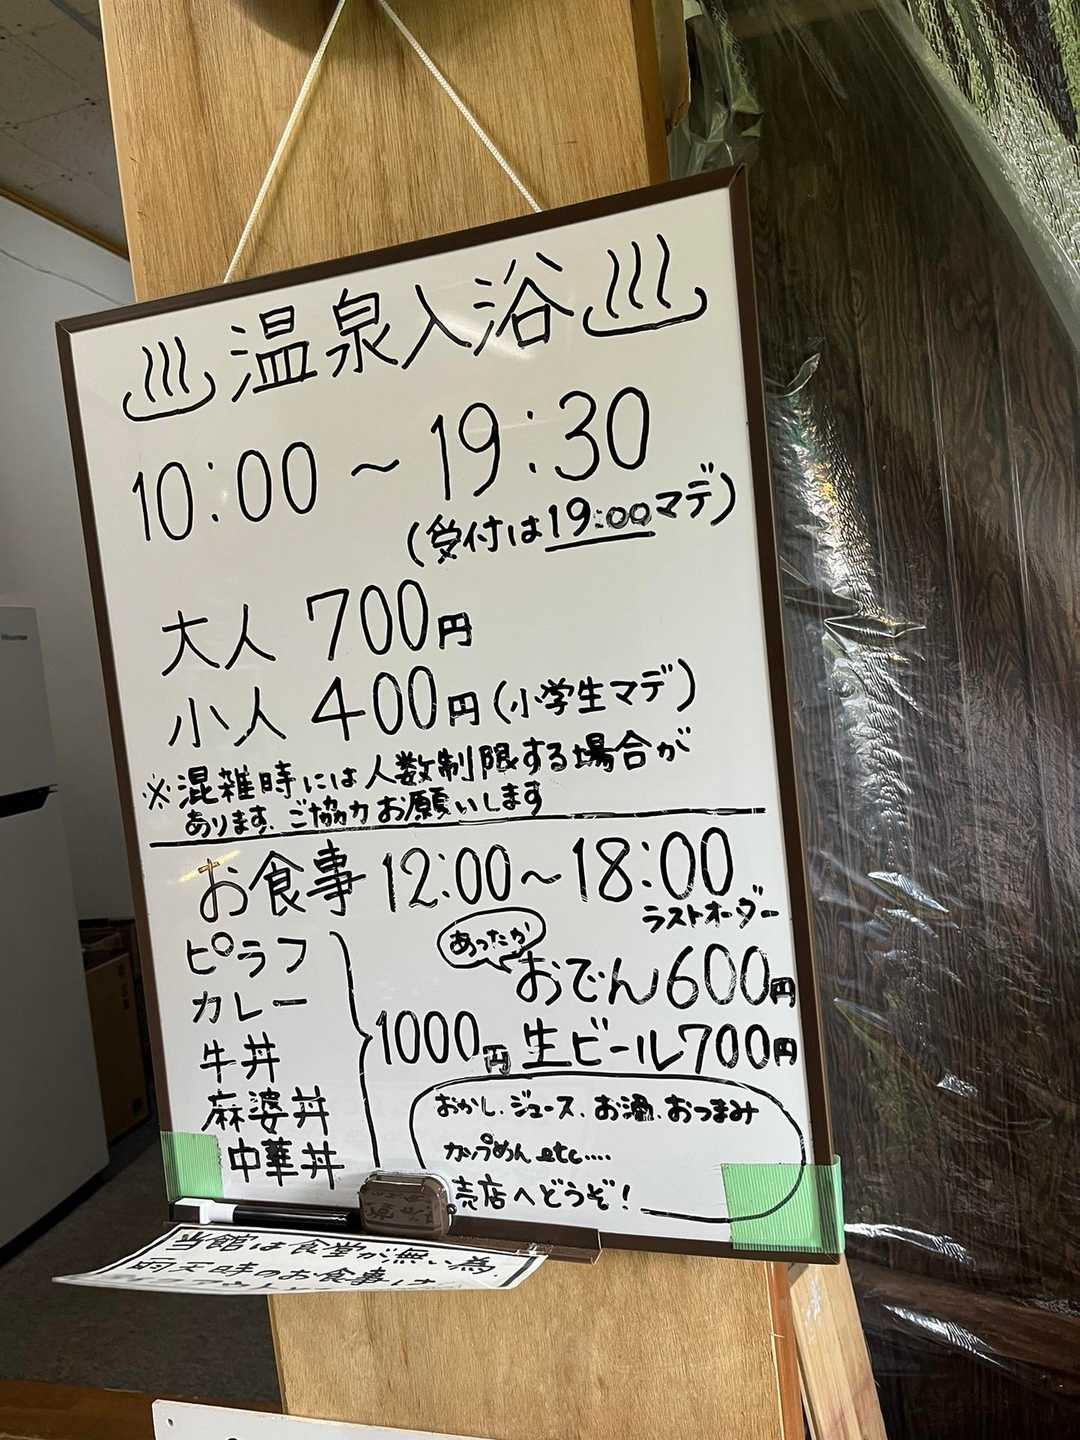 ♨温泉入浴♨
10:00～19:30
(受付は19:00マデ)
大人 700円
小人 400円(小学生マデ)
※混雑時には人数制限する場合が
あります、ご協力お願いします
お食事 12:00～18:00
ラストオーダー
ピラフ
カレー
牛丼
麻婆丼
中華丼
1000円
あったか
おでん600円
生ビール700円
おかし、ジュース、お酒、おつまみ
カップめん etc....
売店へどうぞ!
当館は食堂が無い為、
雨天時のお食事は
Hisense